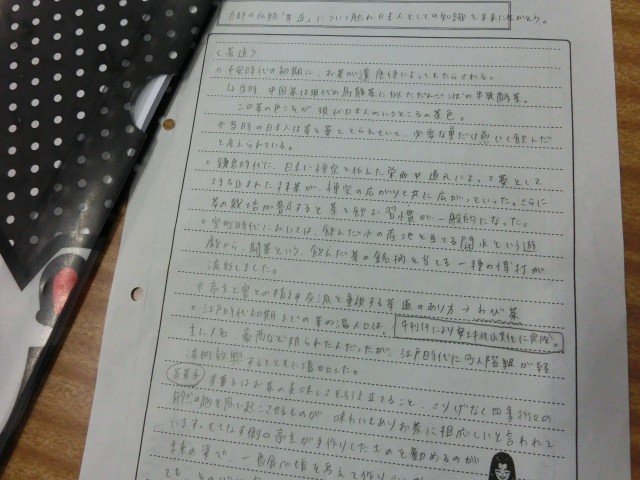 古都の伝統「茶道」について触れ日本人としての知識を未来に生かそう。
<茶道>
○平安時代の初期に、お茶が遣唐使によってもたらされる。
↳当時中国茶は現代の烏龍茶に似ただんご状の半発酵茶。
この茶の色こそが現代日本人のいうところの茶色。
※当時の日本人は茶を薬ととらえていて、必要な量だけ煎じて飲んだ
と考えられている。
○鎌倉時代に、日本に禅宗を伝えた栄西や道元によって薬として
持ち込まれた抹茶が、禅宗の広がりと共に広がっていった。さらに
茶の栽培が普及すると茶を飲む習慣が一般的になった。
○室町時代においては、飲んだ水の産地を当てる闘水という遊
戯から、闘茶という、飲んだ茶の銘柄を当てる一種の博打が
流行しました。
※亭主と客との精神交流を重視する茶道のあり方→わび茶
○江戸時代初期までの茶の湯人口は、
千利休により安土桃山文化に完成。
主に大名、豪商など限られた人だったが、江戸時代に町人階級が経
済的 するとともに増加した。
茶菓子 お菓子はお茶の美味しさをひき立てること、さりげなく四季折々の
自然の趣を思い起こさせるものが、味わいもありお茶に相応しいと言われて
います。もてなす側の亭主が手作りしたものを勧めるのが
本来の姿で、一番食べ頃を考えて作り